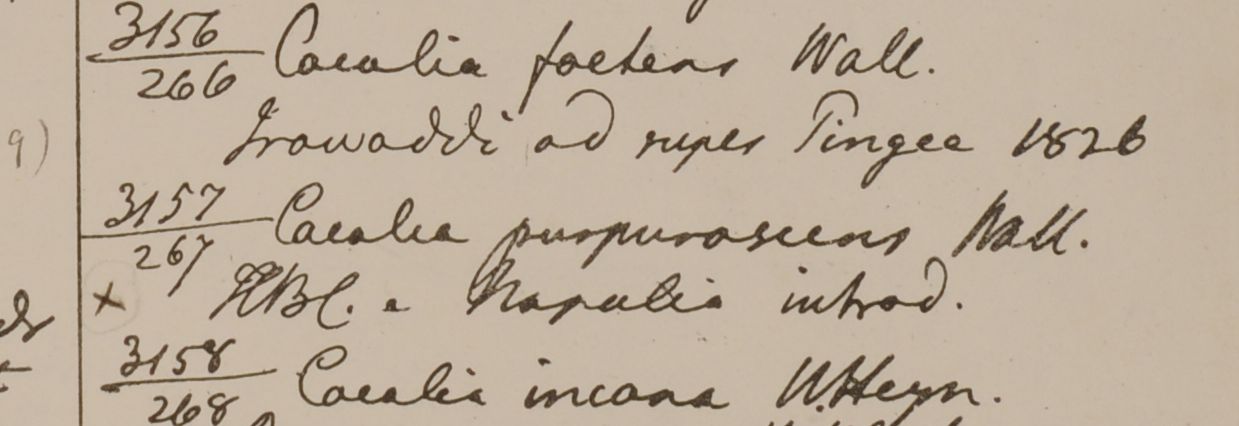 3156/266 Cacalia foetens Wall.
Irawaddi ad rupes Pingee 1826
9)
3157/267 Cacalia purpurascens Wall.
x HBC. e Napalia introd.
3158/268 Cacalia incana W.Heyn.